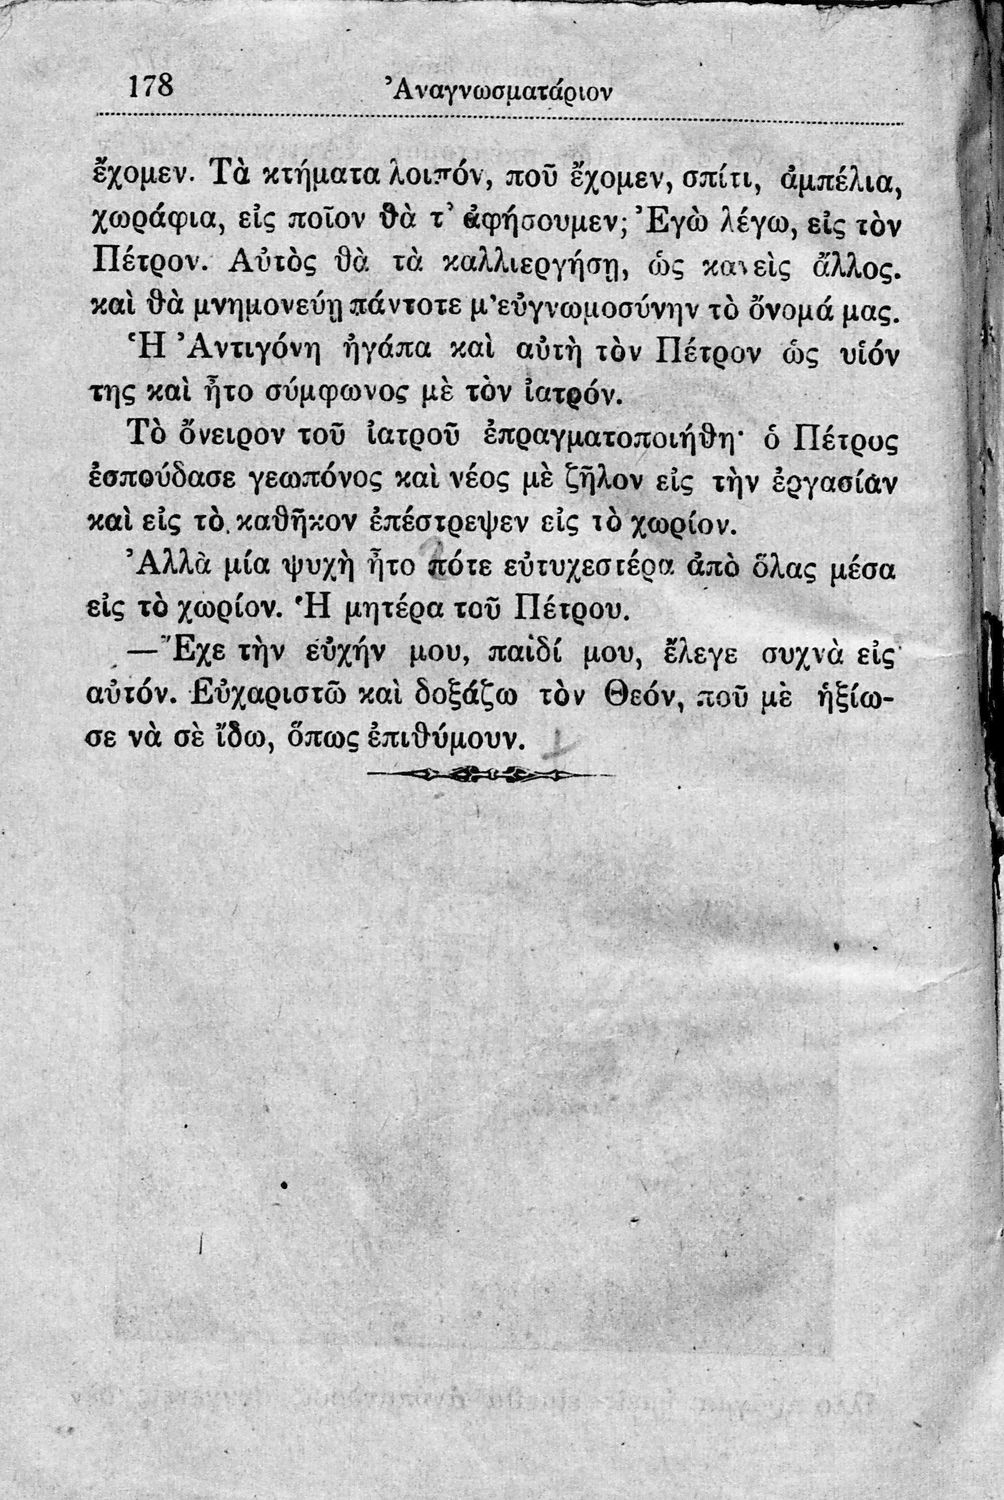 178 Ἀναγνωσματάριον
ἔχομεν. Τὰ κτήματα λοιπόν, ποῦ ἔχομεν, σπίτι, ἀμπέλια,
χωράφια, εἰς ποῖον θὰ τ’ ἀφήσουμεν; Ἐγὼ λέγω, εἰς τὸν
Πέτρον. Αὐτὸς θὰ τὰ καλλιεργήσῃ, ὡς κανεὶς ἄλλος.
καὶ θὰ μνημονεύῃ πάντοτε μ’εὐγνωμοσύνην τὸ ὄνομά μας.
Ἡ Ἀντιγόνη ἠγάπα καὶ αὐτὴ τὸν Πέτρον ὡς υἱόν
της καὶ ἦτο σύμφωνος μὲ τὸν ἰατρόν.
Τὸ ὄνειρον τοῦ ἰατροῦ ἐπραγματοποιήθη· ὁ Πέτρος
ἐσπούδασε γεωπόνος καὶ νέος μὲ ζῆλον εἰς τὴν ἐργασίαν
καὶ εἰς τὸ καθῆκον ἐπέστρεψεν εἰς τὸ χωρίον.
Ἀλλὰ μία ψυχὴ ἦτο πότε εὐτυχεστέρα ἀπὸ ὅλας μέσα
εἰς τὸ χωρίον. Ἡ μητέρα τοῦ Πέτρου.
—Ἔχε τὴν εὐχήν μου, παιδί μου, ἔλεγε συχνὰ εἰς
αὐτόν. Εὐχαριστῶ καὶ δοξάζω τὸν Θεόν, ποῦ μὲ ἠξίω-
σε νὰ σὲ ἴδω, ὅπως ἐπιθύμουν.